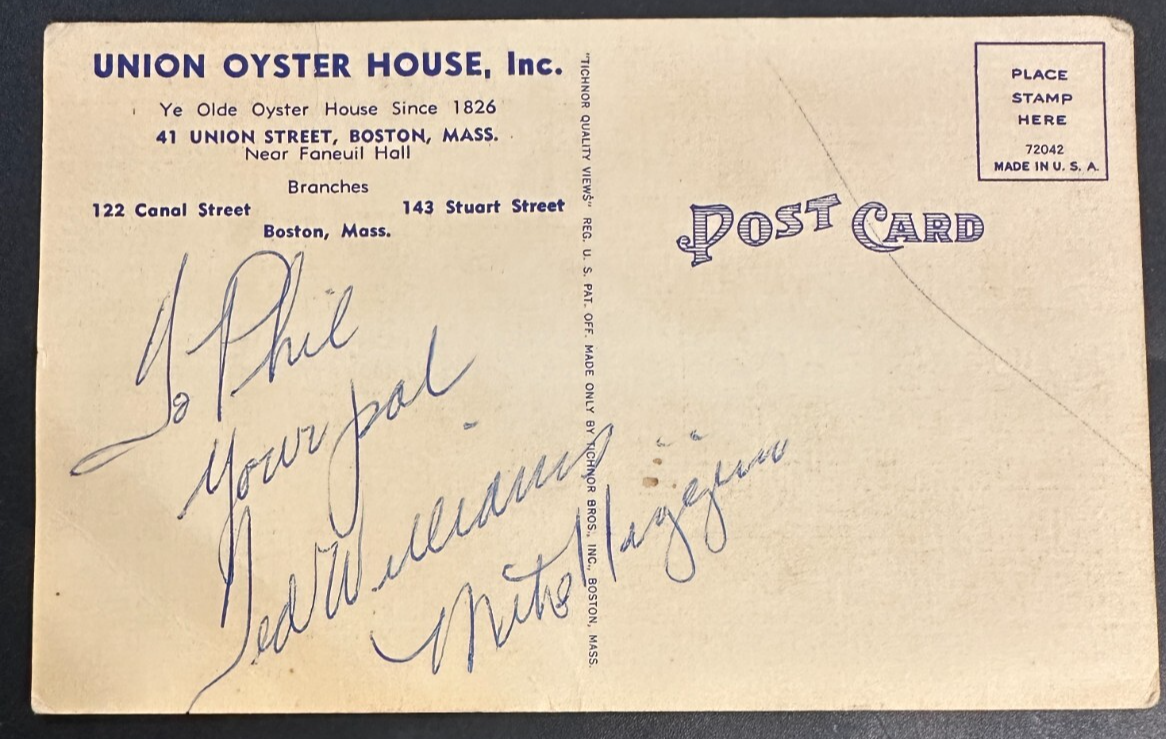 UNION OYSTER HOUSE, Inc.
Ye Olde Oyster House Since 1826
41 UNION STREET, BOSTON, MASS.
Near Faneuil Hall
Branches
122 Canal Street 143 Stuart Street
Boston, Mass.
To Phil
Your pal
Ted Williams
Mike Higgins
"TICHNOR QUALITY VIEWS" REG. U. S. PAT. OFF. MADE ONLY BY TICHNOR BROS., INC., BOSTON, MASS.
PLACE
STAMP
HERE
72042
MADE IN U. S. A.
POST CARD